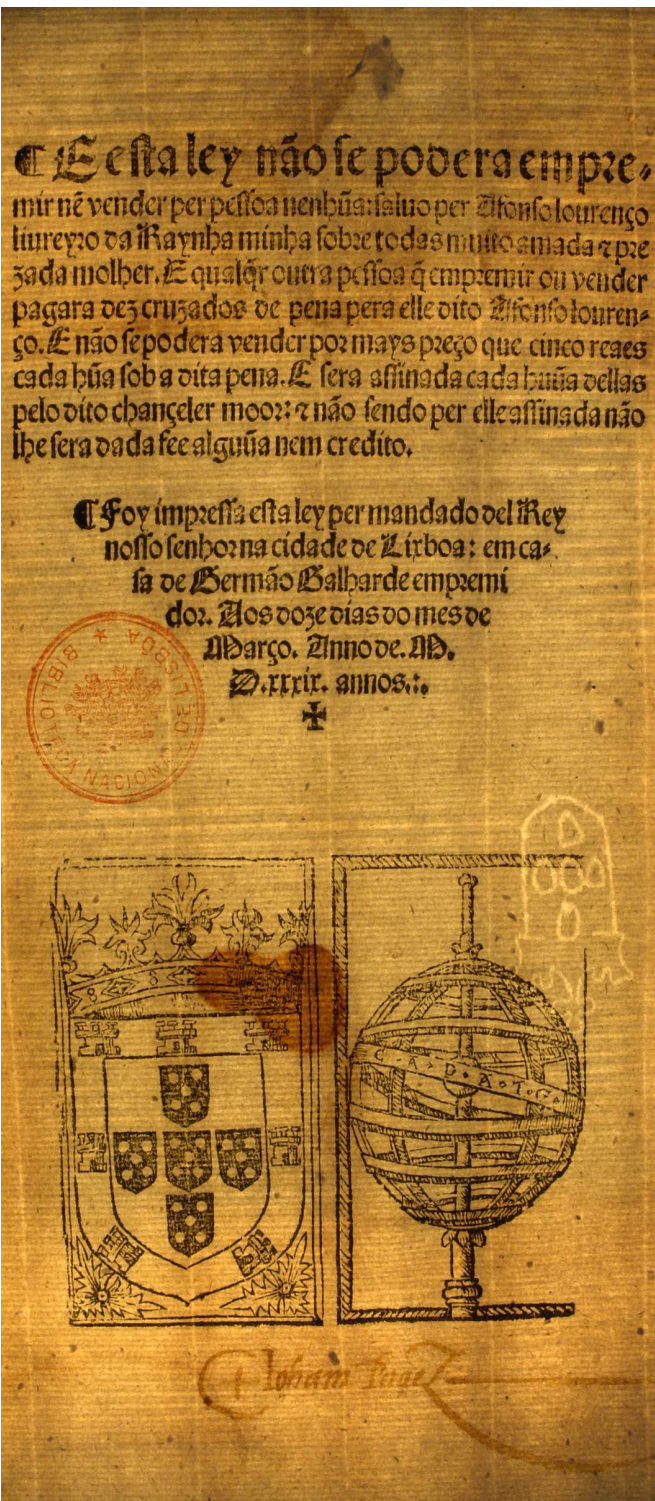 ¶ E esta ley não se podera empre-
mir nẽ vender per pessoa nenhũa: saluo per Afonso lourenço
liureyro da Raynha minha sobre todas muito amada ⁊ pre
zada molher. E qualq̃r outra pessoa q̃ empremir ou vender
pagara dez cruzados de pena pera elle dito Afonso louren-
ço. E não se podera vender por mays preço que cinco reaes
cada hũa sob a dita pena. E sera assinada cada huũa dellas
pelo dito chançeler moor: ⁊ não sendo per elle assinada não
lhe sera dada fee alguũa nem credito.
¶ Foy impressa esta ley per mandado del Rey
nosso senhor na cidade de Lixboa: em ca-
sa de Germão Galharde empremi
dor. Aos doze dias do mes de
Março. Anno de. M.
D.xxxix. annos.:.
BIBLIOTECA NACIONAL DE LISBOA